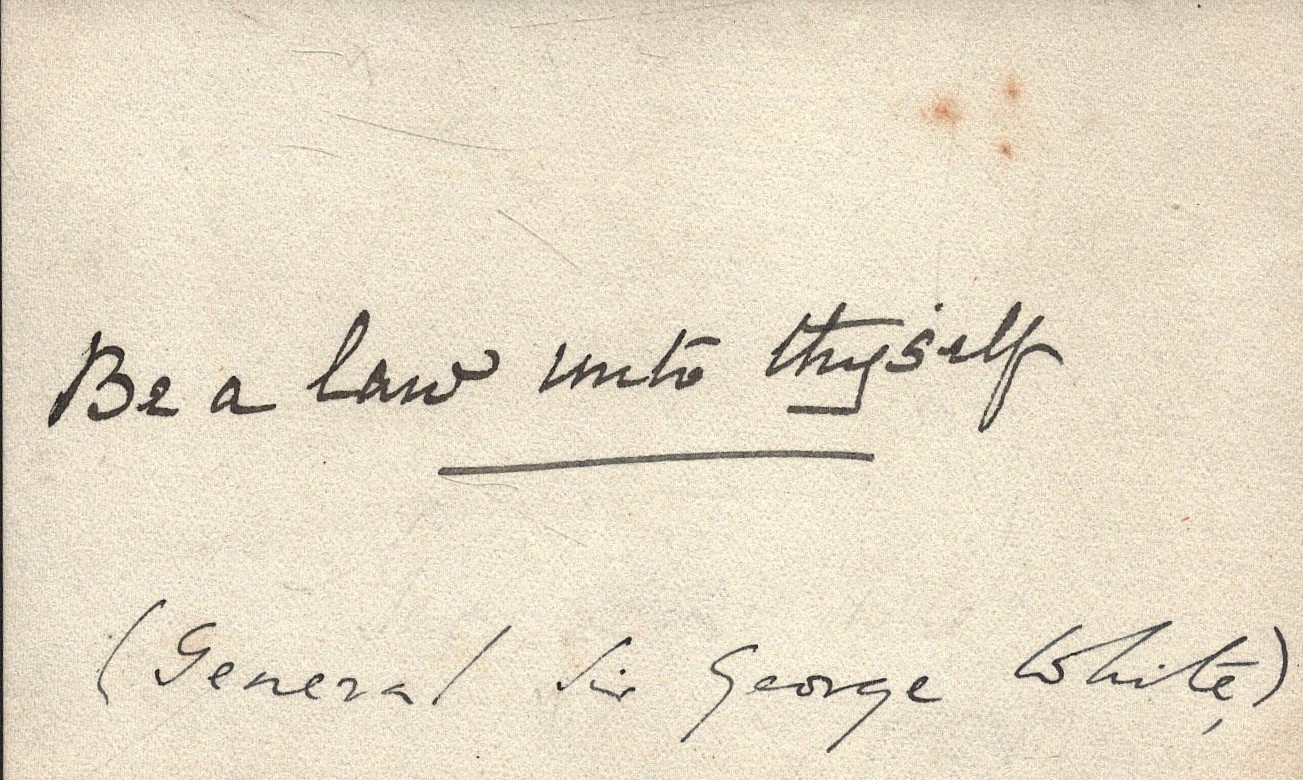 Be a law unto thyself
(General Sir George White,)